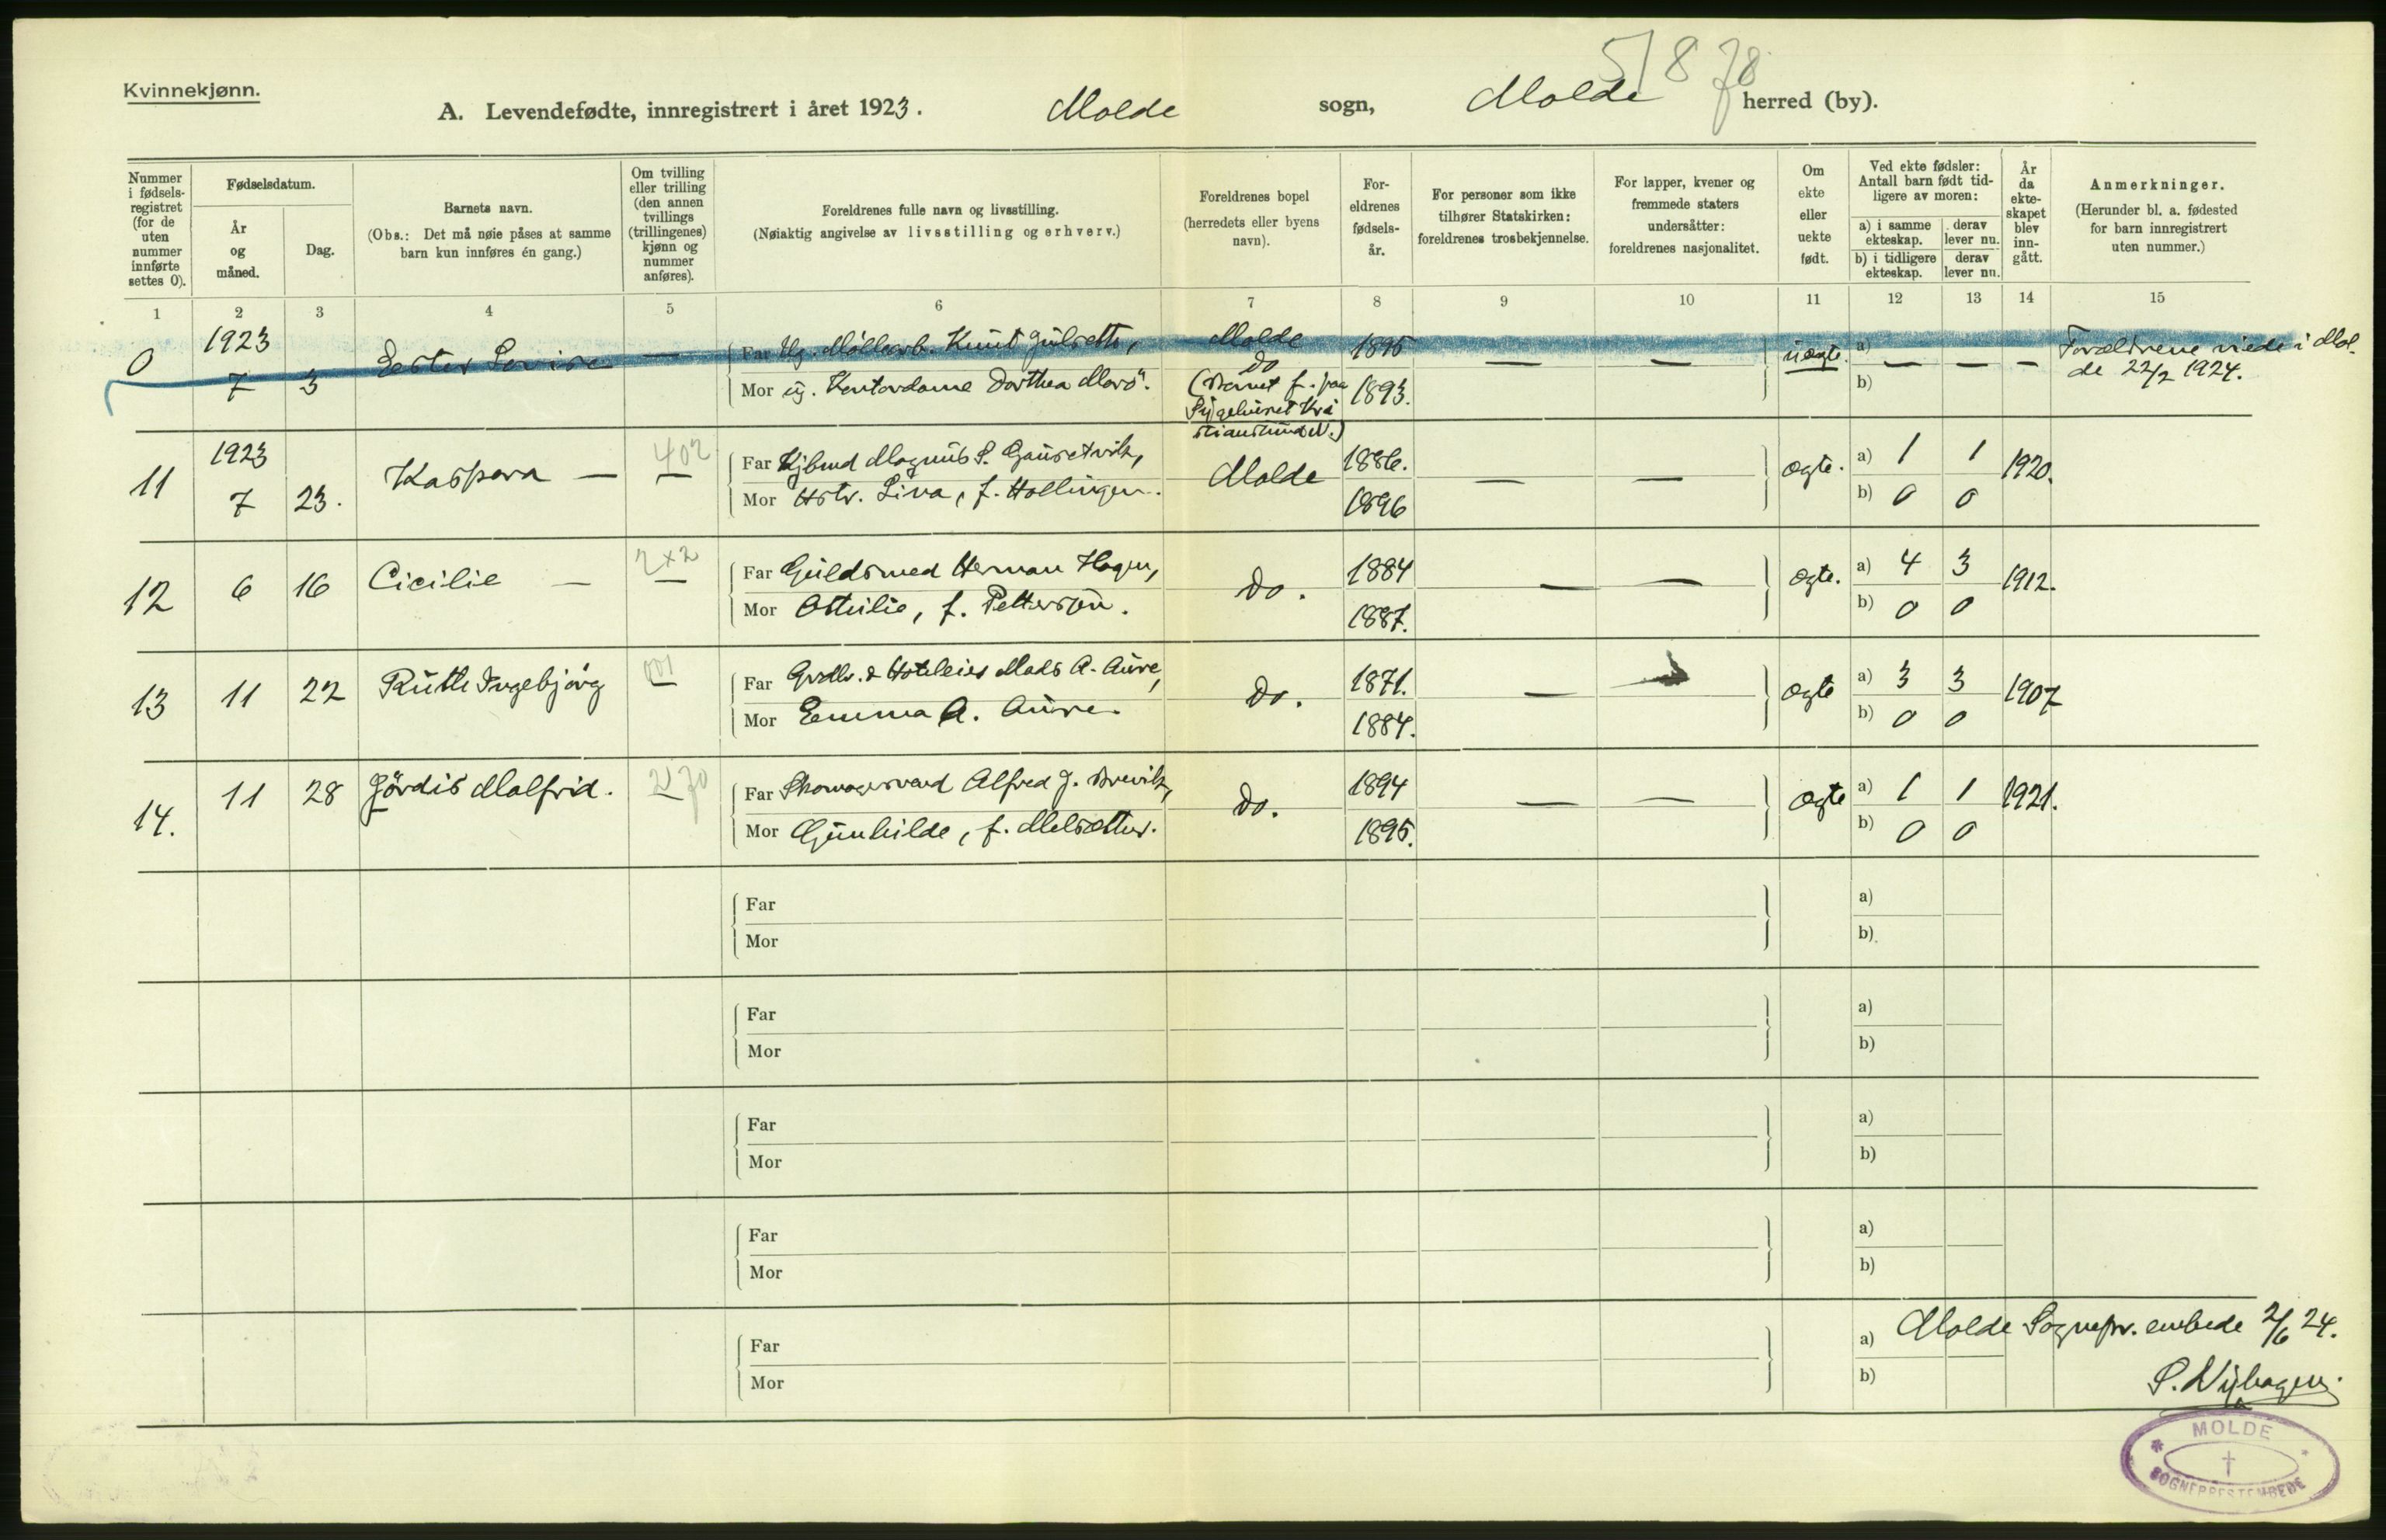 Kvinnekjønn.
51878
A. Levendefødte, innregistrert i året 1923. Molde sogn, Molde herred (by).
Nummer i fødselsregistret (for de uten nummer innførte settes 0).
Fødselsdatum.
År og måned.
Dag.
Barnets navn.
(Obs.: Det må nøie påses at samme barn kun innføres én gang.)
Om tvilling eller trilling (den annen tvillings (trillingenes) kjønn og nummer anføres).
Foreldrenes fulle navn og livsstilling.
(Nøiaktig angivelse av livsstilling og erhverv.)
Foreldrenes bopel
(herredets eller byens navn).
Foreldrenes fødselsår.
For personer som ikke tilhører Statskirken: foreldrenes trosbekjennelse.
For lapper, kvener og fremmede staters undersåtter: foreldrenes nasjonalitet.
Om ekte eller uekte født.
Ved ekte fødsler: Antall barn født tidligere av moren:
a) i samme ekteskap.
derav lever nu.
b) i tidligere ekteskap.
derav lever nu.
År da ekteskapet blev inngått.
Anmerkninger.
(Herunder bl. a. fødested for barn innregistrert uten nummer.)
1 2 3 4 5 6 7 8 9 10 11 12 13 14 15
0 1923 7 3 Ester Lovise —
Far Ug. Møllearb. Knut Gulseth, Molde 1895
Mor ug. Kontordame Dorthea Moro. do 1893.
(Barnet f. paa Sygehuset Kristiansund N.)
— — uægte. a) — — —
b)
Forældrene viede i Molde 22/2 1924.
11 1923 7 23. Kaspara — 402 —
Far Kjbmd Magnus S. Gausetvik, Molde 1886. — — ægte. a) 1 1 1920.
Mor Hstr. Lina, f. Hollingen. 1896 b) 0 0
12 6 16 Cicilie — 2x2 —
Far Guldsmed Herman Hagen, do. 1884 — — ægte. a) 4 3 1912.
Mor Othilie, f. Petterson. 1887. b) 0 0
13 11 22 Ruth Ingebjørg —
Far Grdbr. & Hoteleier Mads A. Aure, do. 1871. — — ægte a) 3 3 1907
Mor Emma A. Aure. 1884. b) 0 0
14. 11 28 Jørdis Malfrid. —
Far Skomagersvend Alfred J. Brevik, do. 1894 — — ægte a) 1 1 1921.
Mor Gunhilde, f. Melsæther. 1895. b) 0 0
Far a)
Mor b)
Far a)
Mor b)
Far a)
Mor b)
Far a)
Mor b)
Far a)
Mor b)
Molde Sognepr. embede 2/6 24.
MOLDE
SOGNEPRESTEMBEDE